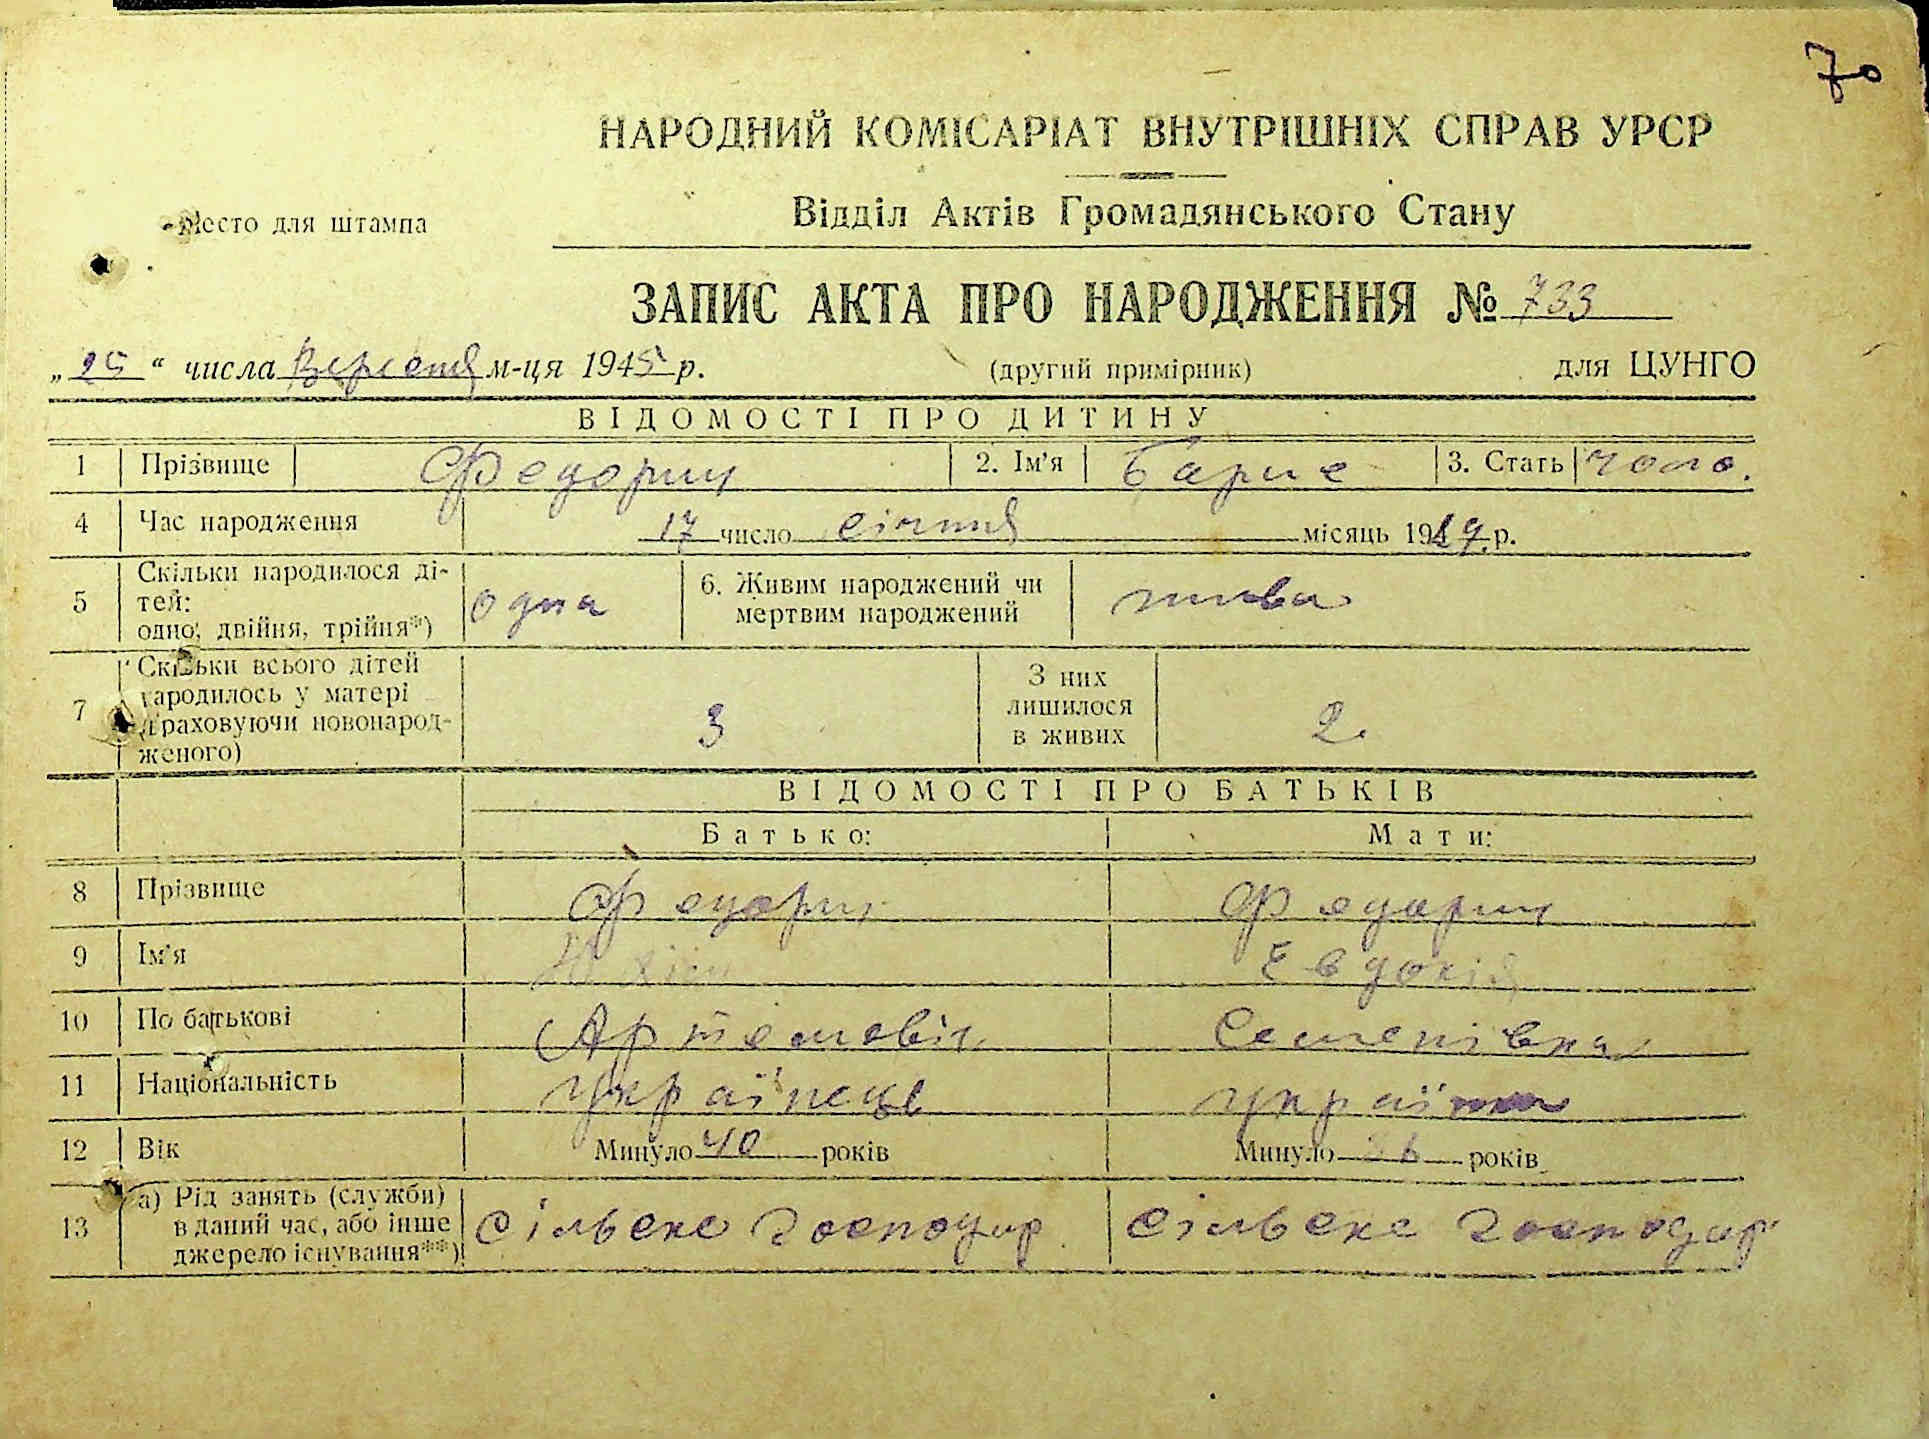 70
НАРОДНИЙ КОМІСАРІАТ ВНУТРІШНІХ СПРАВ УРСР
Відділ Актів Громадянського Стану
Место для штампа
ЗАПИС АКТА ПРО НАРОДЖЕННЯ № 733
„25“ числа Вересня м-ця 1945 р. (другий примірник) для ЦУНГО
ВІДОМОСТІ ПРО ДИТИНУ
1 Прізвище Федорич 2. Ім'я Барис 3. Стать чоло.
4 Час народження 17 число січня місяць 19 р.
5 Скільки народилося дітей: одно, двійня, трійня*) одна 6. Живим народжений чи мертвим народжений жива
7 Скільки всього дітей народилось у матері (враховуючи новонародженого) 3 З них лишилося в живих 2.
ВІДОМОСТІ ПРО БАТЬКІВ
Батько: Мати:
8 Прізвище Федорич Федорич
9 Ім'я Евдокія
10 По батькові Артемовіч Семенівна
11 Національність українець українка
12 Вік Минуло 40 років Минуло років
13 а) Рід занять (служби) в даний час, або інше джерело існування**) сільське господар сільське господар